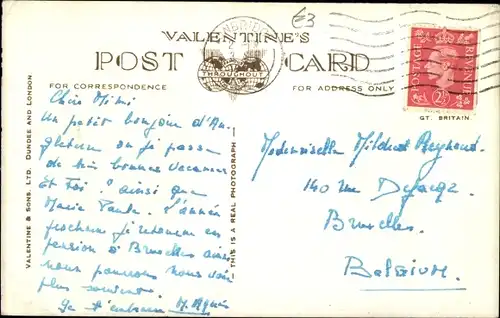 £3
VALENTINE'S
POST CARD
THROUGHOUT
FOR CORRESPONDENCE
FOR ADDRESS ONLY
POSTAGE
REVENUE
2½
GT. BRITAIN
VALENTINE & SONS, LTD. DUNDEE AND LONDON
THIS IS A REAL PHOTOGRAPH
Chère Mimi
Un petit bonjour d'An-
gleterre où je passe
de très bonnes vacances
Et Toi? ainsi que
Marie Paule. L'année
prochaine je retourne en
pension à Bruxelles ainsi
nous pourrons nous voir
plus souvent.
Je t'embrasse M. Agnès
Mademoiselle Mildred
140 rue
Bruxelles.
BELGIUM.